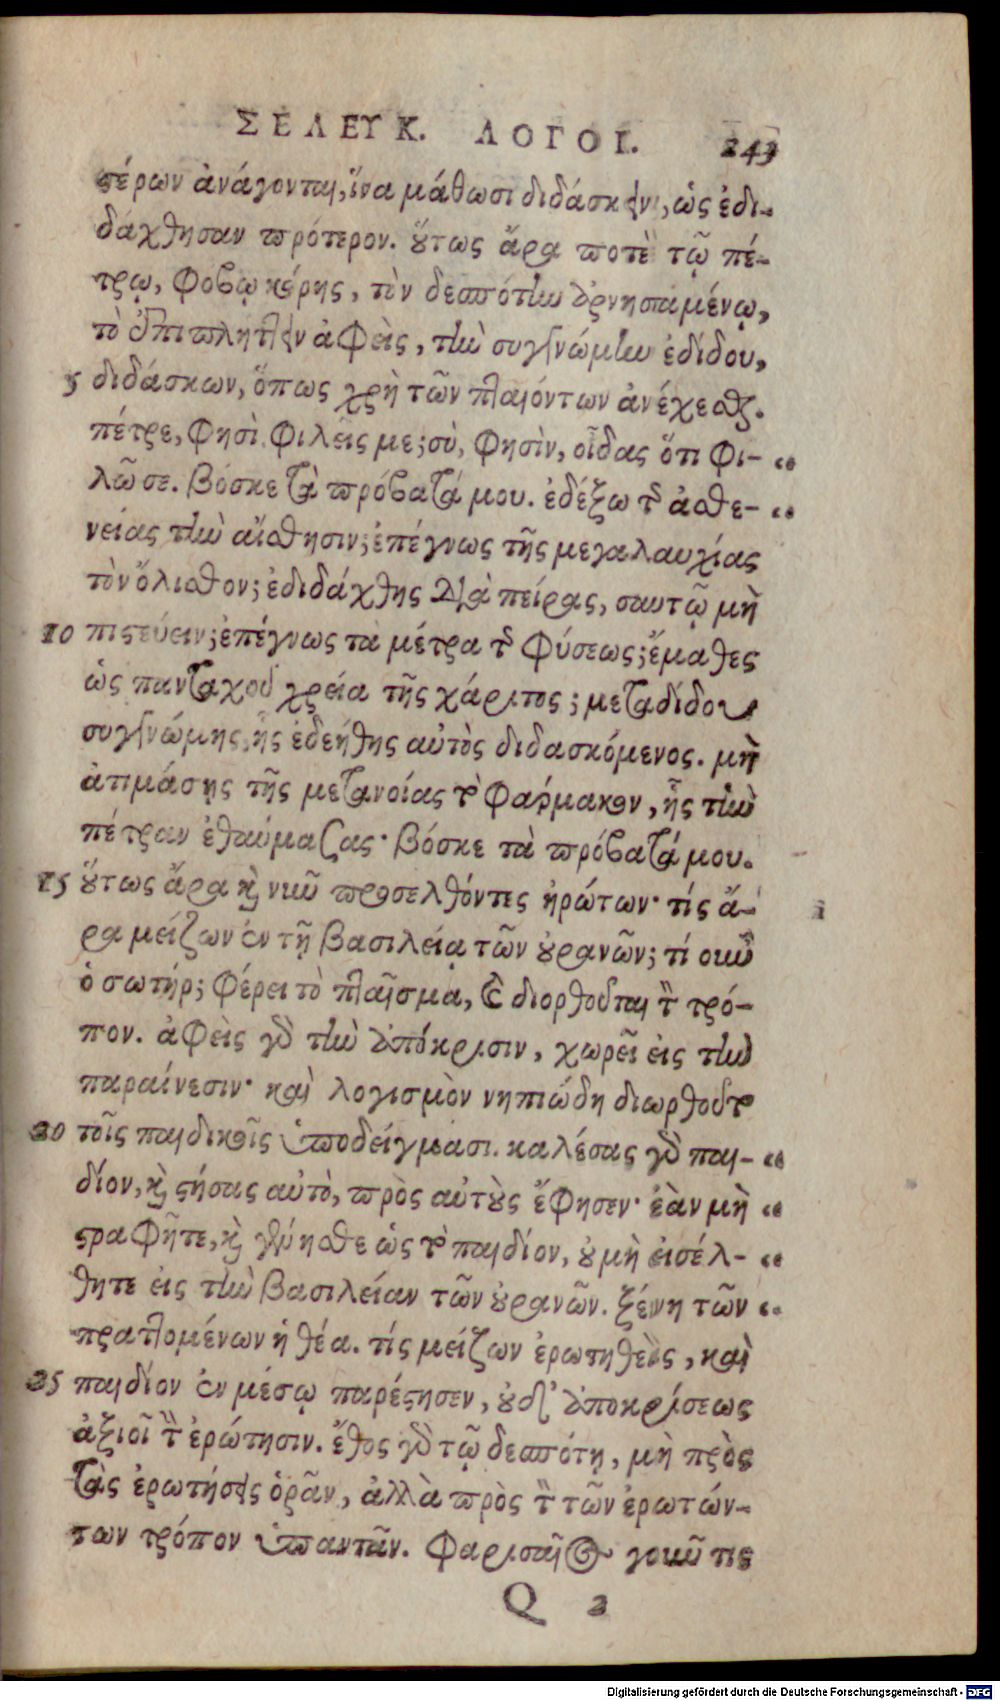 ΣΕΛΕΥΚ. ΛΟΓΟΙ. 243
τέρων ἀνάγονται, ἵνα μάθωσι διδάσκειν, ὡς ἐδι-
δάχθησαν πρότερον. οὕτως ἄρα ποτὲ τῷ πέ-
τρῳ, φόβῳ κόρης, τὸν δεσπότην ἀρνησαμένῳ,
τὸ ἐπιπλήττειν ἀφεὶς, τὴν συγγνώμην ἐδίδου,
5 διδάσκων, ὅπως χρὴ τῶν πταιόντων ἀνέχεσθαι.
πέτρε, φησὶ φιλεῖς με; σύ, φησὶν, οἶδας ὅτι φι- „
λῶ σε. βόσκε τὰ πρόβατά μου. ἐδέξω τῆς ἀσθε- „
νείας τὴν αἴσθησιν; ἐπέγνως τῆς μεγαλαυχίας
τὸν ὄλισθον; ἐδιδάχθης διὰ πείρας, σαυτῷ μὴ
10 πιστεύειν; ἐπέγνως τὰ μέτρα τῆς φύσεως; ἔμαθες
ὡς πανταχοῦ χρεία τῆς χάριτος; μεταδίδου
συγγνώμης, ἧς ἐδεήθης αὐτὸς διδασκόμενος. μὴ
ἀτιμάσῃς τῆς μετανοίας τὸ φάρμακον, ἧς τὴν
πέτραν ἐθαύμαζας· βόσκε τὰ πρόβατά μου.
15 οὕτως ἄρα καὶ νῦν προσελθόντες ἠρώτων· τίς ἄ-
ρα μείζων ἐν τῇ βασιλείᾳ τῶν οὐρανῶν; τί οὖν
ὁ σωτήρ; φέρει τὸ πταῖσμα, καὶ διορθοῦται τὸν τρό-
πον. ἀφεὶς γὰρ τὴν ἀπόκρισιν, χωρεῖ εἰς τὴν
παραίνεσιν· καὶ λογισμὸν νηπιώδη διωρθοῦτο
20 τοῖς παιδικοῖς ὑποδείγμασι. καλέσας γὰρ παι- „
δίον, καὶ στήσας αὐτὸ, πρὸς αὐτοὺς ἔφησεν· ἐὰν μὴ „
στραφῆτε, καὶ γένησθε ὡς τὸ παιδίον, οὐ μὴ εἰσέλ- „
θητε εἰς τὴν βασιλείαν τῶν οὐρανῶν. ξένη τῶν „
πραττομένων ἡ θέα. τίς μείζων ἐρωτηθεὶς, καὶ
25 παιδίον ἐν μέσῳ παρέστησεν, οὐδ' ἀποκρίσεως
ἀξιοῖ τὴν ἐρώτησιν. ἔθος γὰρ τῷ δεσπότῃ, μὴ πρὸς
τὰς ἐρωτήσεις ὁρᾶν, ἀλλὰ πρὸς τὸν τῶν ἐρωτών-
των τρόπον ὑπαντᾶν. Φαρισαῖος γοῦν τις
Q 2
Digitalisierung gefördert durch die Deutsche Forschungsgemeinschaft - DFG